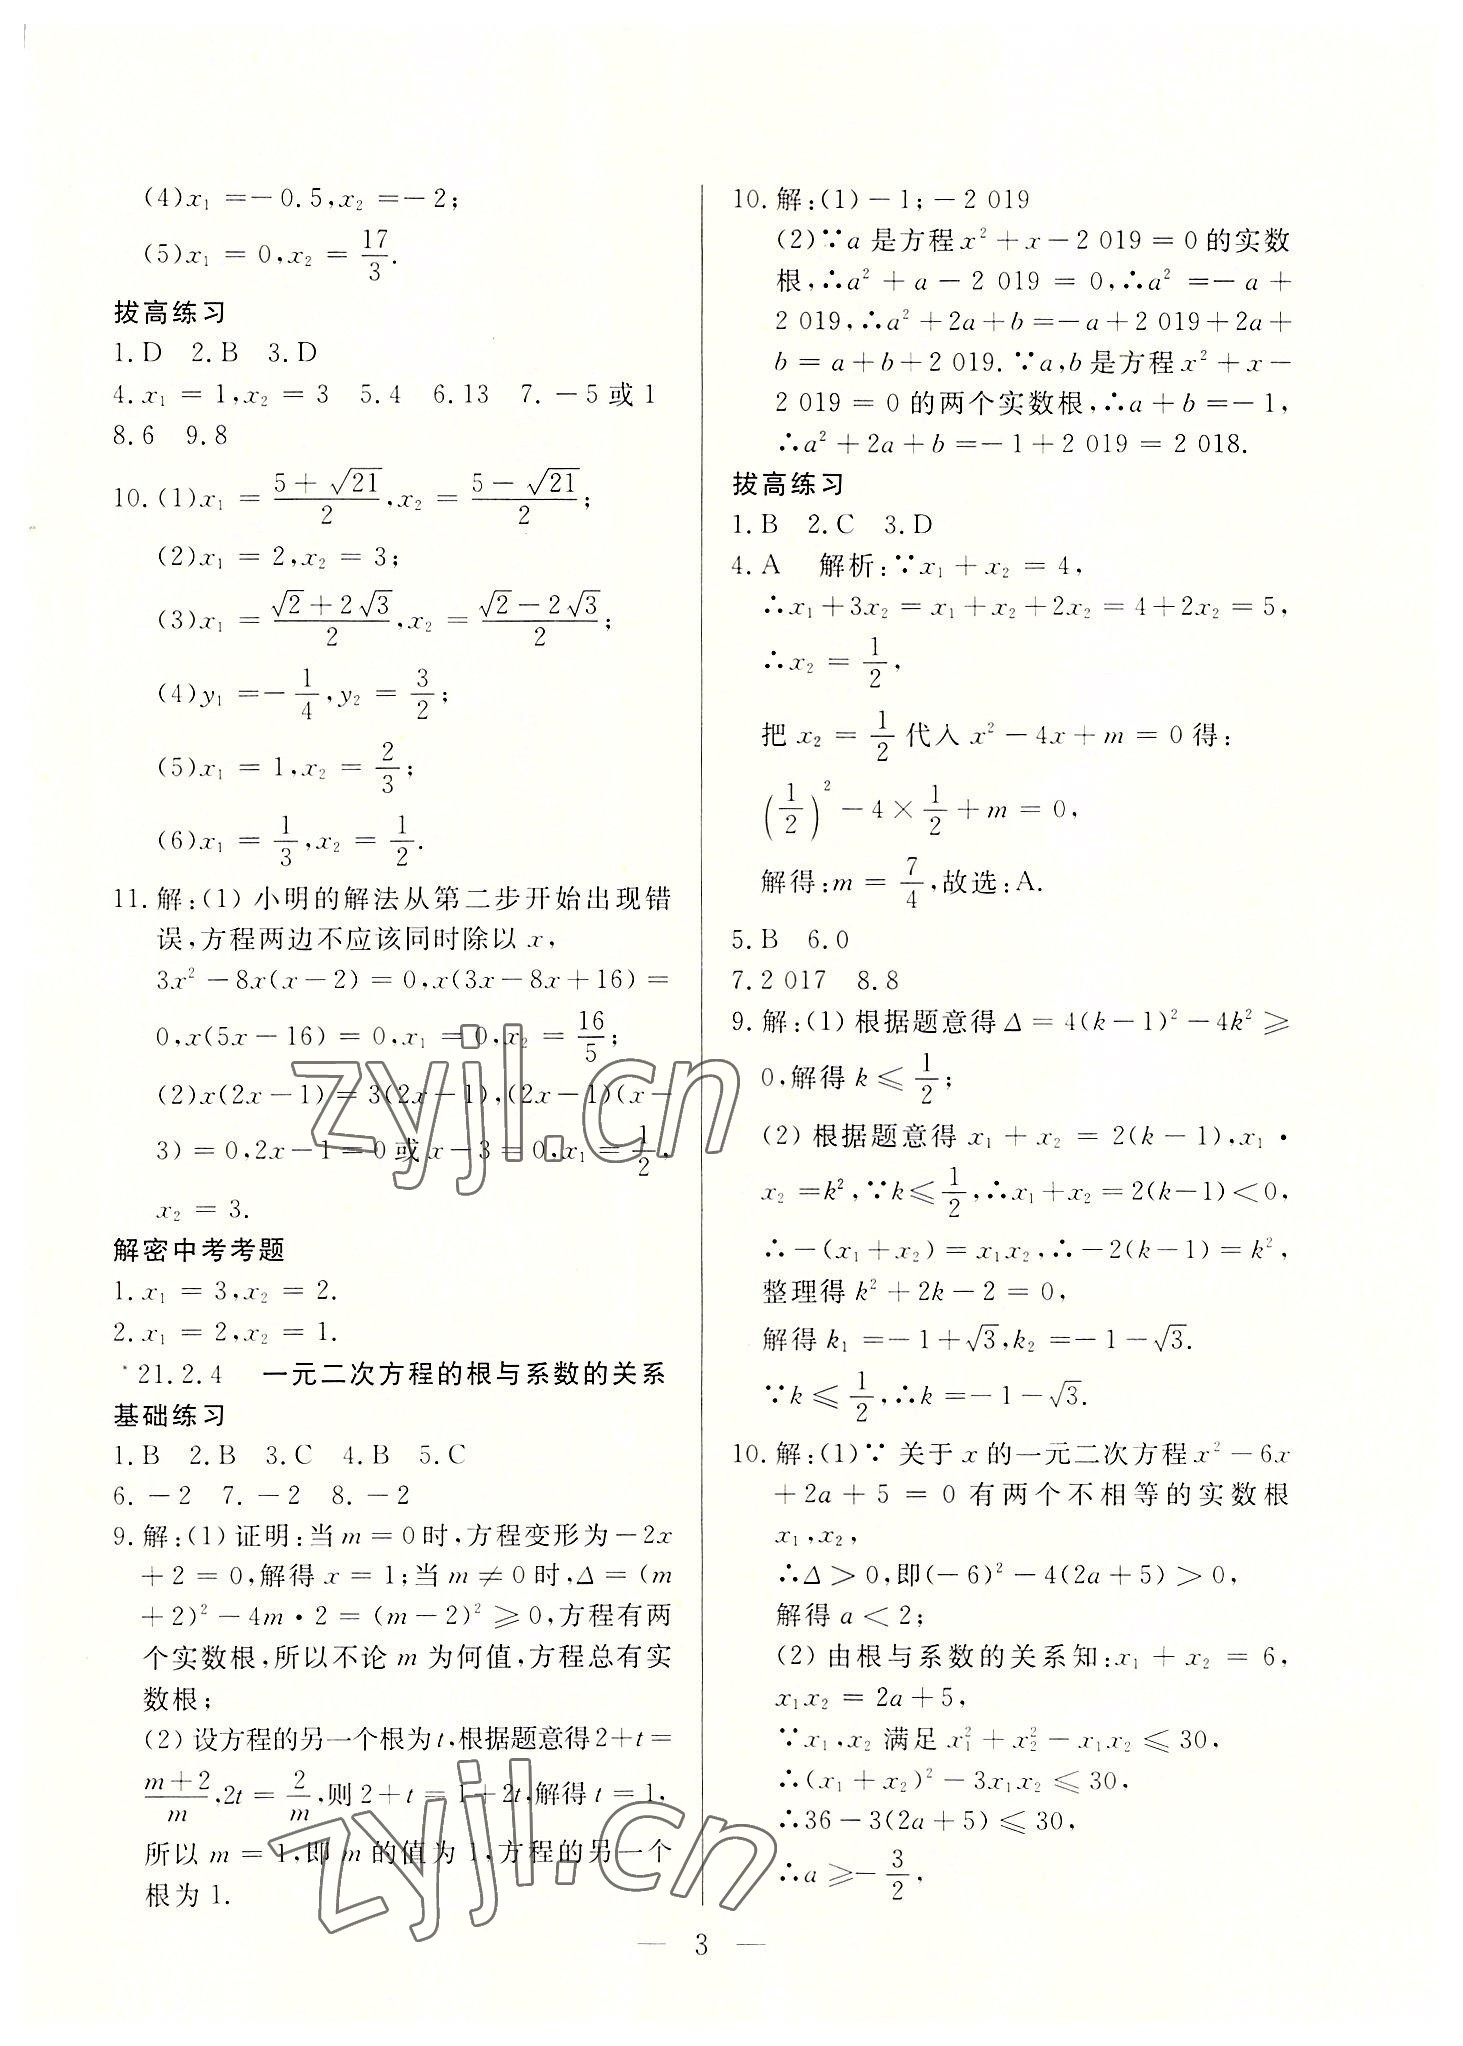 (4)x₁ =－0.5,x₂ =－2;
(5)x₁ = 0,x₂ = 17/3.
拔高练习
1.D 2.B 3.D
4.x₁ = 1,x₂ = 3 5.4 6.13 7.－5或1
8.6 9.8
10.(1)x₁ = (5＋√21)/2,x₂ = (5－√21)/2;
(2)x₁ = 2,x₂ = 3;
(3)x₁ = (√2＋2√3)/2,x₂ = (√2－2√3)/2;
(4)y₁ =－1/4,y₂ = 3/2;
(5)x₁ = 1,x₂ = 2/3;
(6)x₁ = 1/3,x₂ = 1/2.
11.解:(1)小明的解法从第二步开始出现错
误,方程两边不应该同时除以x,
3x²－8x(x－2)＝0,x(3x－8x＋16)＝
0,x(5x－16)＝0,x₁＝0,x₂＝16/5;
(2)x(2x－1)＝3(2x－1),(2x－1)(x－
3)＝0,2x－1＝0或x－3＝0,x₁＝1/2,
x₂ = 3.
解密中考考题
1.x₁ = 3,x₂ = 2.
2.x₁ = 2,x₂ = 1.
*21.2.4 一元二次方程的根与系数的关系
基础练习
1.B 2.B 3.C 4.B 5.C
6.－2 7.－2 8.－2
9.解:(1)证明:当m＝0时,方程变形为－2x
＋2＝0,解得x＝1;当m≠0时,Δ＝(m
＋2)²－4m·2＝(m－2)²≥0,方程有两
个实数根,所以不论m为何值,方程总有实
数根;
(2)设方程的另一个根为t,根据题意得2＋t＝
(m＋2)/m,2t＝2/m,则2＋t＝1＋2t,解得t＝1,
所以m＝1,即m的值为1,方程的另一个
根为1.
10.解:(1)－1;－2 019
(2)∵a是方程x²＋x－2 019＝0的实数
根,∴a²＋a－2 019＝0,∴a²＝－a＋
2 019,∴a²＋2a＋b＝－a＋2 019＋2a＋
b＝a＋b＋2 019.∵a,b是方程x²＋x－
2 019＝0的两个实数根,∴a＋b＝－1,
∴a²＋2a＋b＝－1＋2 019＝2 018.
拔高练习
1.B 2.C 3.D
4.A 解析:∵x₁＋x₂＝4,
∴x₁＋3x₂＝x₁＋x₂＋2x₂＝4＋2x₂＝5,
∴x₂＝1/2,
把x₂＝1/2代入x²－4x＋m＝0得:
(1/2)²－4×1/2＋m＝0,
解得:m＝7/4,故选:A.
5.B 6.0
7.2 017 8.8
9.解:(1)根据题意得Δ＝4(k－1)²－4k²≥
0,解得k≤1/2;
(2)根据题意得x₁＋x₂＝2(k－1),x₁·
x₂＝k²,∵k≤1/2,∴x₁＋x₂＝2(k－1)＜0,
∴－(x₁＋x₂)＝x₁x₂,∴－2(k－1)＝k²,
整理得k²＋2k－2＝0,
解得k₁＝－1＋√3,k₂＝－1－√3.
∵k≤1/2,∴k＝－1－√3.
10.解:(1)∵关于x的一元二次方程x²－6x
＋2a＋5＝0有两个不相等的实数根
x₁,x₂,
∴Δ＞0,即(－6)²－4(2a＋5)＞0,
解得a＜2;
(2)由根与系数的关系知:x₁＋x₂＝6,
x₁x₂＝2a＋5,
∵x₁,x₂满足x₁²＋x₂²－x₁x₂≤30,
∴(x₁＋x₂)²－3x₁x₂≤30,
∴36－3(2a＋5)≤30,
∴a≥－3/2,
— 3 —
zyjl.cn
zyjl.cn